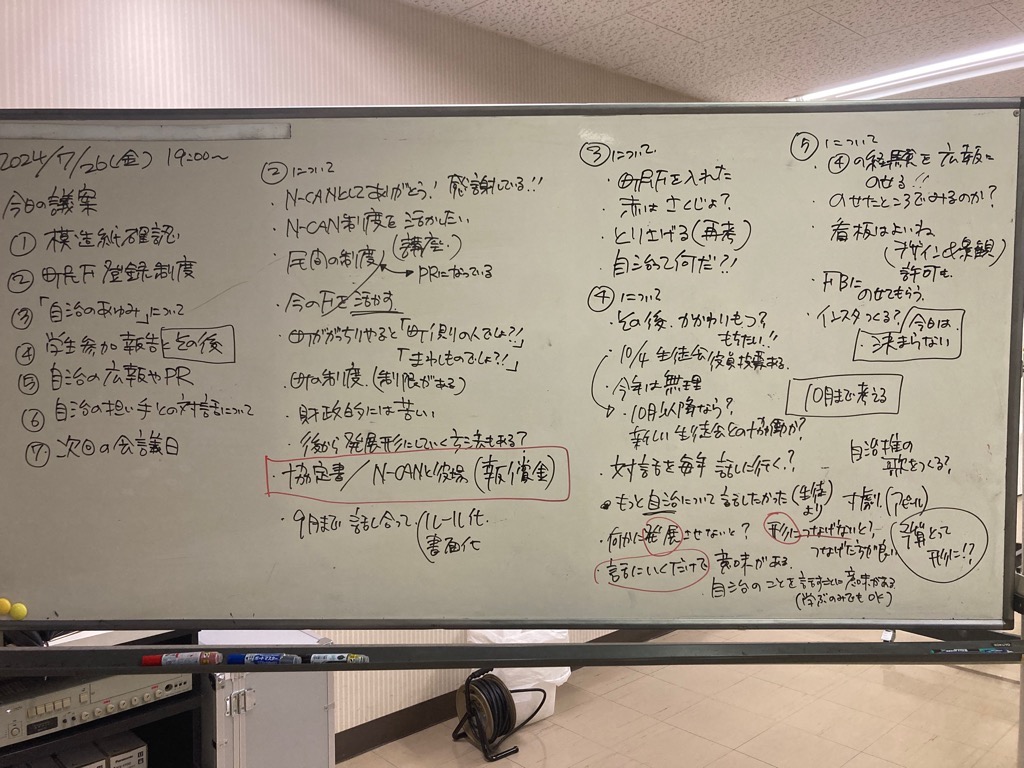 2024/7/26(金) 19:00～
今日の議案
① 模造紙確認
② 町民F登録制度
③ 「自治のあゆみ」について
④ 学生参加報告とその後
⑤ 自治の広報やPR
⑥ 自治の担い手との対話について
⑦ 次回の会議日
②について
・N-CANとしてありがとう! 感謝している!!
・N-CAN制度を活かしたい
・民間の制度(講座・)
→PRになっている
・今のFを活かす
・町ががっちりやると「町(側)の人でしょ?!」
「まわしものでしょ?!」
・町の制度(制限がある)
・財政的には苦しい
・後から発展形にしていく方法もある?
・協定書/N-CANと役場(報償金)
・9月まで話し合って(ルール化
書面化
③について
・町民Fを入れた
・赤はさくじょ?
・とり上げる(再考)
・自治って何だ?!
④について
・その後、かかわりもつ?
もちたい!!
・10/4 生徒会役員披露ある。
・今年は無理
・10月以降なら?
新しい生徒会との協働か?
・対話を毎年話しに行く?
・もっと自治について話したかった(生徒より)
・何かに発展させないと?
形につなげないと?
つなげた方が良い
話にいくだけで意味がある。
自治のことを話すことに意味がある
(学ぶのみでもOK)
⑤について
・④の経験を広報に
のせる!!
のせたところでみるのか?
・看板はよいね
(デザイン&景観)
許可も
・FBに
のせてもらう。
・インスタつくる?
今日は
決まらない
10月まで考える
自治推の
歌をつくる?
寸劇(アピール)
予算とって
形に!?